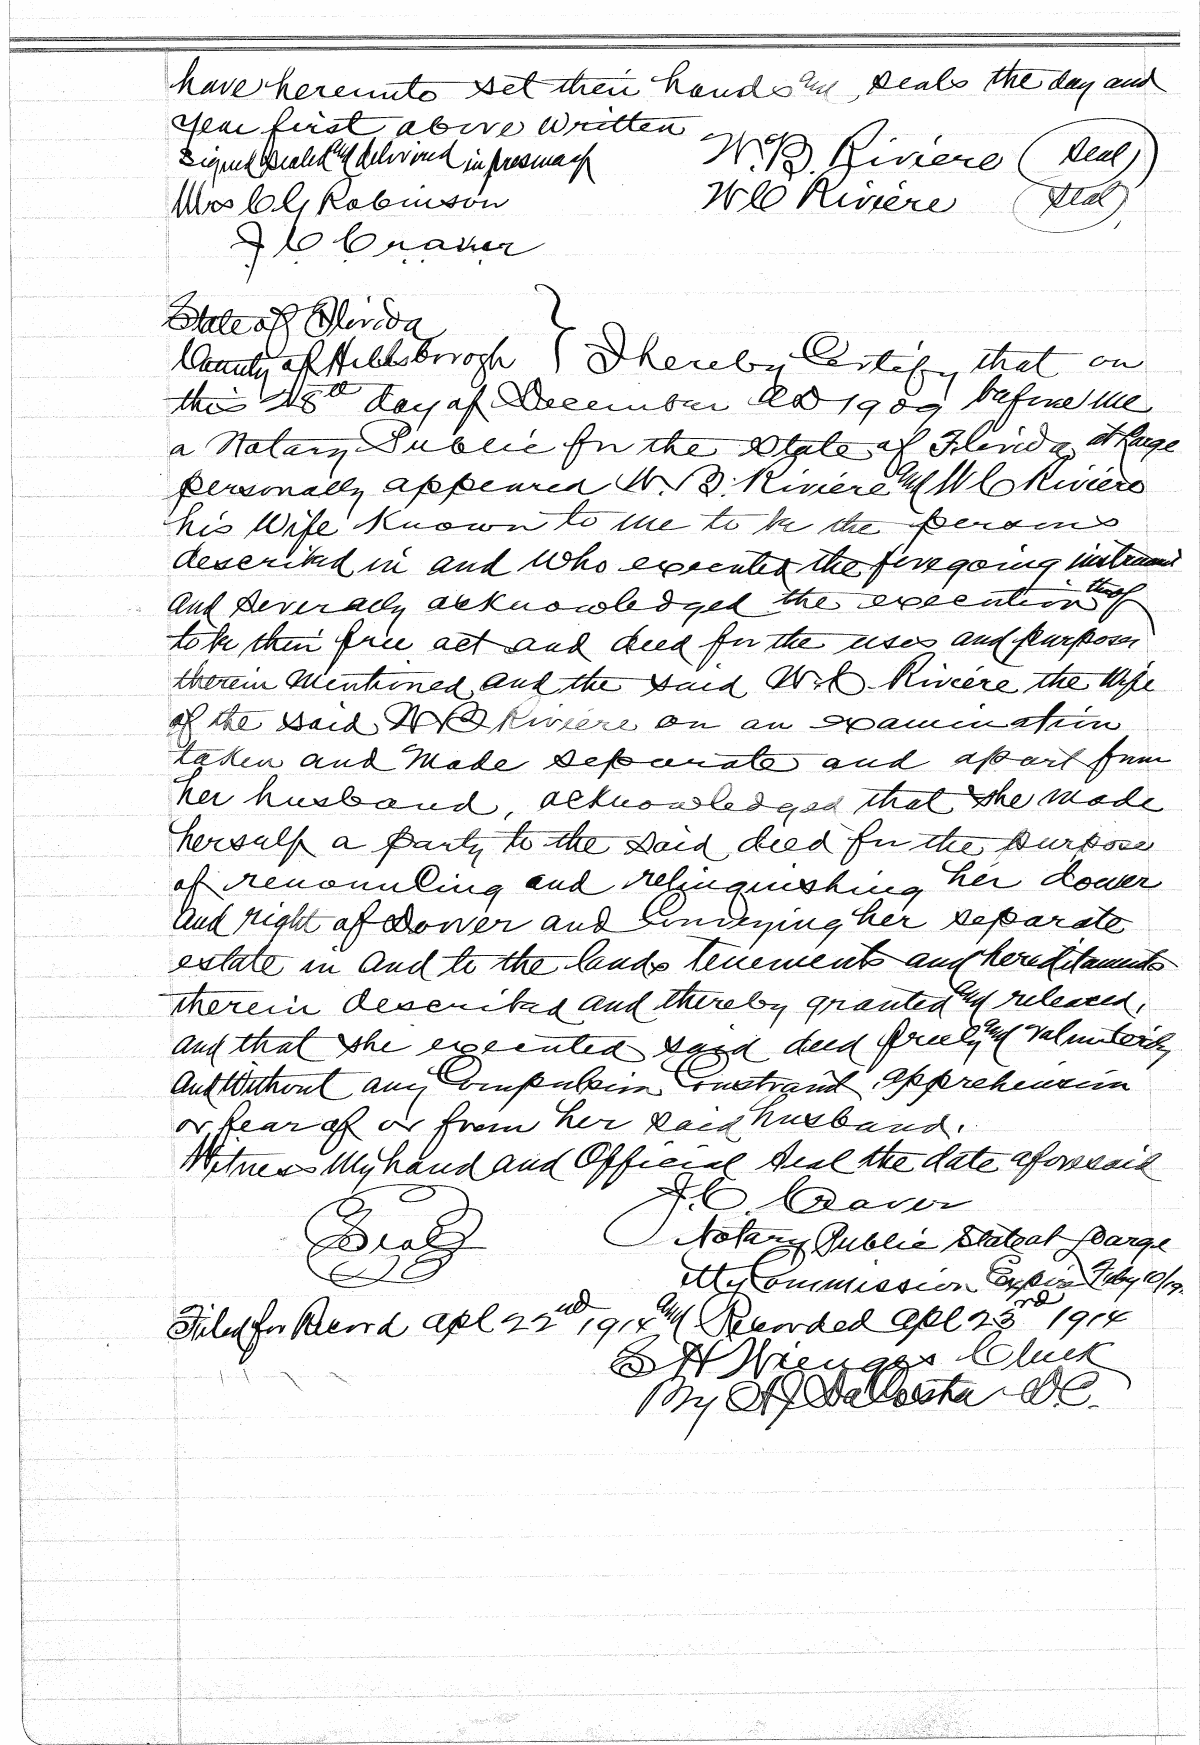 have hereunto set their hands and seals the day and
year first above written
Signed sealed and delivered in presence of
W. B. Riviere (Seal)
Mrs C G Robinson
W C Riviere (Seal)
J C Craver
State of Florida
County of Hillsborough } I hereby Certify that on
this 28th day of December AD 1909 before me
a Notary Public for the State of Florida at large
personally appeared W. B. Riviere and W C Riviere
his Wife known to me to be the persons
described in and who executed the foregoing instrument
and severally acknowledged the execution thereof
to be their free act and deed for the uses and purposes
therein mentioned and the said W. C Riviere the Wife
of the said W B Riviere on an examination
taken and made separate and apart from
her husband, acknowledged that she made
herself a party to the said deed for the purpose
of renouncing and relinquishing her dower
and right of Dower and Conveying her separate
estate in and to the lands tenements and hereditaments
therein described and thereby granted and released,
and that she executed said deed freely and voluntarily
and without any Compulsion Constraint, apprehension
or fear of or from her said husband.
Witness My hand and Official Seal the date aforesaid
J. C. Craver
Seal
Notary Public State at Large
My Commission Expires Feby 10/19
Filed for Record Apl 22nd 1914 and Recorded Apl 23rd 1914
Clerk
By DaCosta D.C.